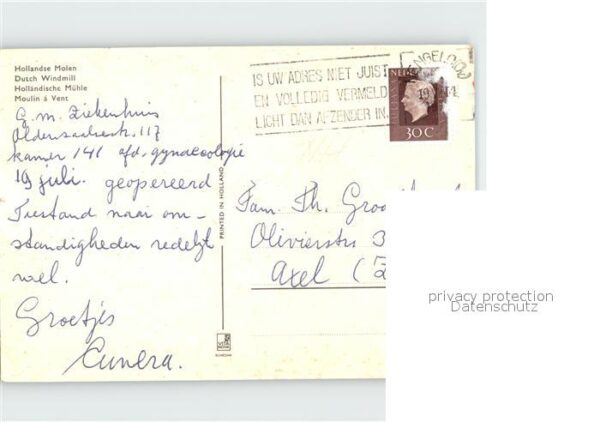 Hollandse Molen
Dutch Windmill
Holländische Mühle
Moulin à Vent
G.M. Ziekenhuis
Oldenzaalsestr. 117
kamer 141 afd. gynaecologie
19 juli. geopereerd
Toestand naar om-
standigheden redelyk
wel.
Groetjes
Cunera.
PRINTED IN HOLLAND
IS UW ADRES NIET JUIST
EN VOLLEDIG VERMELD
LICHT DAN AFZENDER IN
ENGELO(OV)
NEDERLAND
30 C
Fam. Th.
Olivierstr 3
Axel (Z
privacy protection
Datenschutz